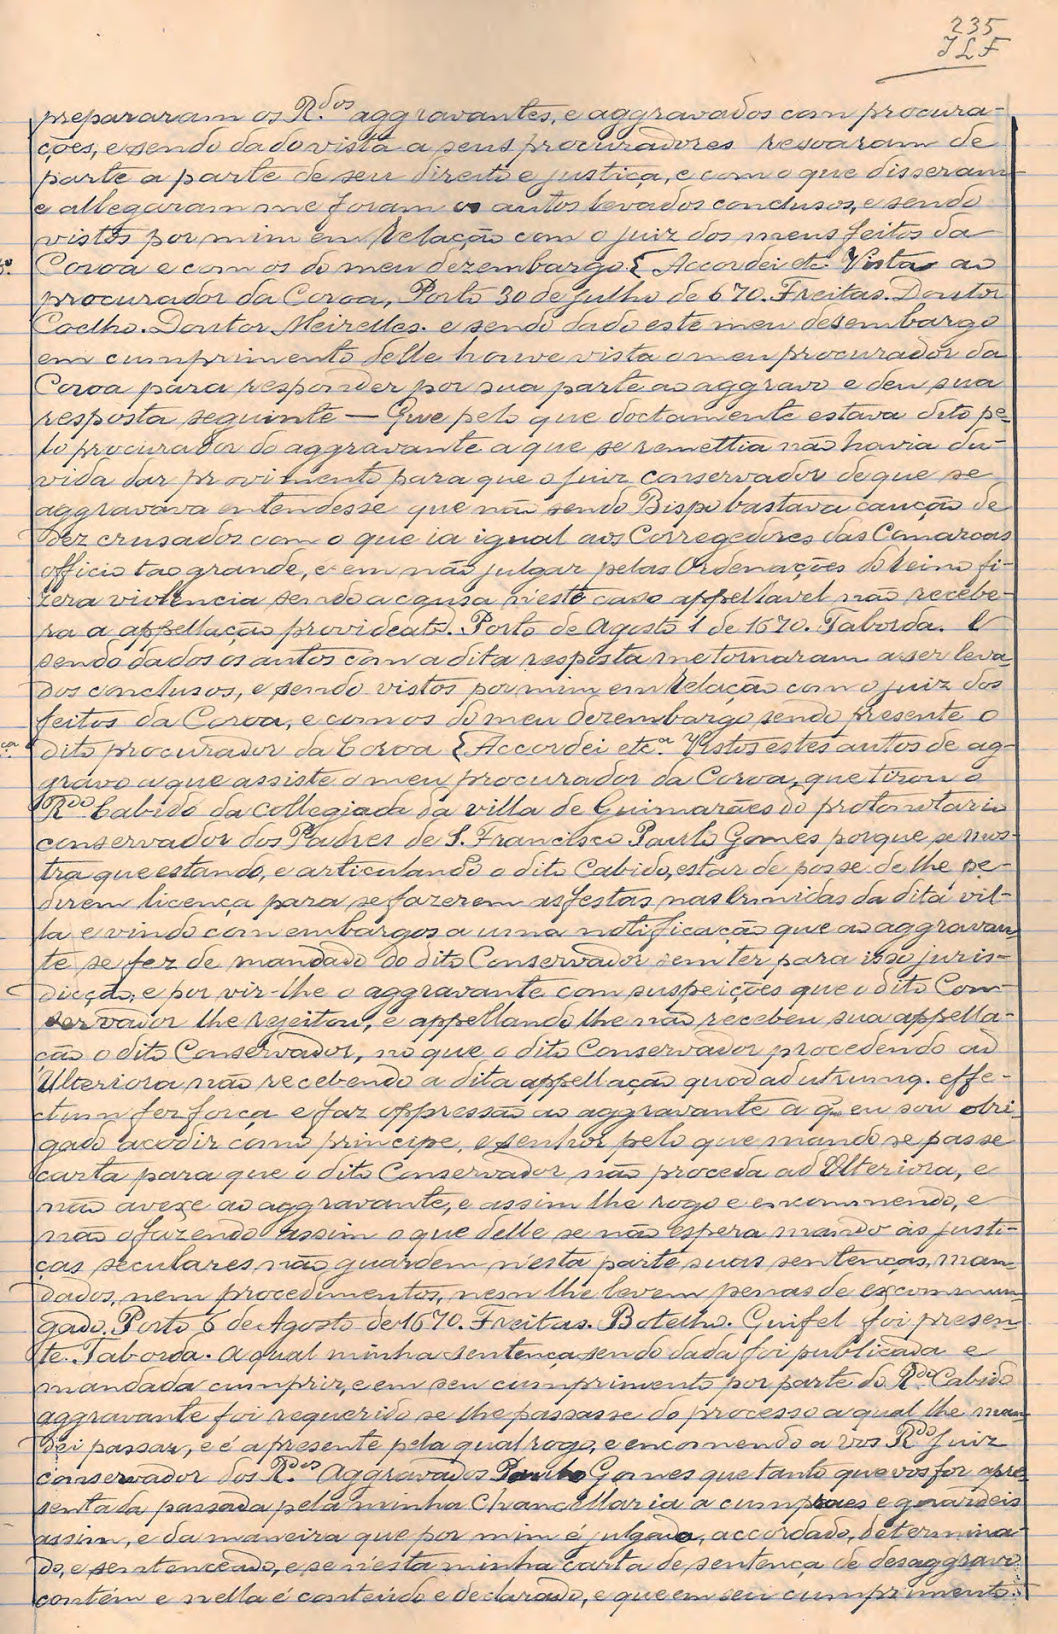 235
JLF
prepararam os R.dos aggravantes, e aggravados com procura-
ções, e sendo dado vista a seus procuradores resoaram de
parte a parte de seu direito e justiça, e com o que disseram
e allegaram me foram os autos levados conclusos, e sendo
vistos por mim em Relação com o juiz dos meus feitos da
Coroa e com os do meu dezembargo { Accordei etc. Vista ao
procurador da Coroa, Porto 30 de julho de 670. Freitas. Doutor
Coelho. Doutor Meirelles. e sendo dado este meu desembargo
em cumprimento delle houve vista o meu procurador da
Coroa para responder por sua parte ao aggravo e deu sua
resposta seguinte — Que pelo que doctamente estava dito pe-
lo procurador do aggravante a que se remettia não havia du-
vida dar provimento para que o juiz conservador de que se
aggravava entendesse que não sendo Bispo bastava caução de
dez crusados com o que ia igual aos Corregedores das Comarcas
officio tao grande, e em não julgar pelas Ordenações do reino fi-
zera violencia sendo a causa n'este caso appellavel não recebe-
ra a appellação provideatr. Porto de Agosto 1 de 1670. Taborda. E
sendo dados os autos com a dita resposta me tornaram a ser leva-
dos conclusos, e sendo vistos por mim em Relação com o juiz dos
feitos da Coroa, e com os do meu dezembargo sendo presente o
dito procurador da Coroa { Accordei etc.a Vistos estes autos de ag-
gravo a que assiste o meu procurador da Coroa, que tirou o
R.do Cabido da Collegiada da villa de Guimarães do protonotario
conservador dos Padres de S. Francisco Paulo Gomes porque se mos-
tra que estando, e articulando o dito Cabido, estar de posse de lhe pe-
direm licença para se fazerem as festas nas Ermidas da dita vil-
la e vindo com embargos a uma notificação que ao aggravan-
te se fez de mandado do dito Conservador sem ter para isso juris-
dicção, e por vir-lhe o aggravante com suspeições que o dito Con-
servador lhe rejeitou, e appellando lhe não recebeu sua appella-
ção o dito Conservador, no que o dito Conservador procedendo ad
Ulteriora não recebendo a dita appellação quodadutrumq. effe-
ctum fez força e faz oppressão ao aggravante a q. eu sou obri-
gado acodir como principe, e senhor pelo que mando se passe
carta para que o dito Conservador não proceda ad Ulteriora, e
não avexe ao aggravante, e assim lhe rogo e encommendo, e
não o fazendo assim o que delle se não espera mando ás justi-
ças seculares não guardem n'esta parte suas sentenças, man-
dados, nem procedimentos, nem lhe levem penas de excommun-
gado. Porto 6 de Agosto de 1670. Freitas. Botelho. Guifel foi presen-
te. Taborda. A qual minha sentença sendo dada foi publicada e
mandada cumprir, e em seu cumprimento por parte do R.do Cabido
aggravante foi requerido se lhe passasse do processo a qual lhe man-
dei passar, e é a presente pela qual rogo, e encomendo a vos R.do Juiz
conservador dos R.dos Aggravados Paulo Gomes que tanto que vos for apre-
sentada passada pela minha Chancellaria a cumpraes e guardeis
assim, e da maneira que por mim é julgado, accordado, determina-
do, e sentenceado, e se n'esta minha carta de sentença de desaggravo
contém e nella é conteúdo e declarado, e que em seu cumprimento